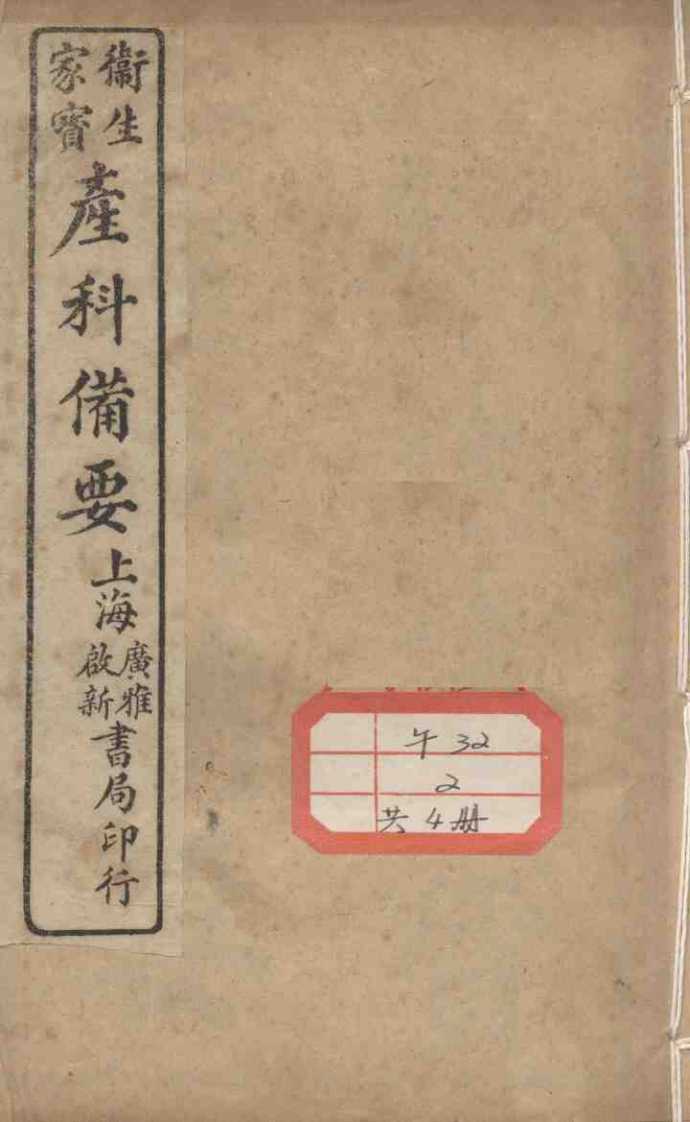 衞生
家寳
產科備要
上海
廣雅
啟新
書局印行
午 32
2
共 4 册